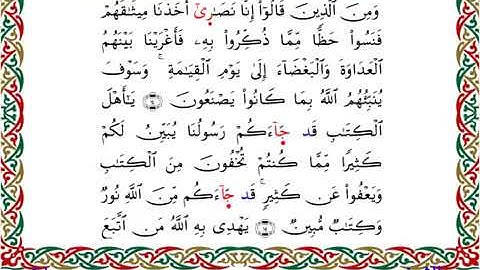 وَمِنَ ٱلَّذِينَ قَالُوٓا۟ إِنَّا نَصَٰرَىٰٓ أَخَذْنَا مِيثَٰقَهُمْ
فَنَسُوا۟ حَظًّا مِّمَّا ذُكِّرُوا۟ بِهِۦ فَأَغْرَيْنَا بَيْنَهُمُ
ٱلْعَدَاوَةَ وَٱلْبَغْضَآءَ إِلَىٰ يَوْمِ ٱلْقِيَٰمَةِ ۚ وَسَوْفَ
يُنَبِّئُهُمُ ٱللَّهُ بِمَا كَانُوا۟ يَصْنَعُونَ ۝١٤ يَٰٓأَهْلَ
ٱلْكِتَٰبِ قَدْ جَآءَكُمْ رَسُولُنَا يُبَيِّنُ لَكُمْ
كَثِيرًا مِّمَّا كُنتُمْ تُخْفُونَ مِنَ ٱلْكِتَٰبِ
وَيَعْفُوا۟ عَن كَثِيرٍ ۚ قَدْ جَآءَكُم مِّنَ ٱللَّهِ نُورٌ
وَكِتَٰبٌ مُّبِينٌ ۝١٥ يَهْدِى بِهِ ٱللَّهُ مَنِ ٱتَّبَعَ